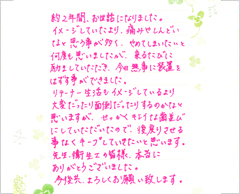 約2年間、お世話になりました。
イメージしていたより、痛みやしんどい
なと思う事が多く、やめてしまいたいと
何度も思いましたが、来るたびに
励ましていただき、今日無事に装置を
はずす事ができました。
リテーナー生活もイメージしているより
大変だったり面倒だったりするのかなと
思いますが、せっかくキレイな歯並び
にしていただいたので、後戻りさせる
事なくキープしていきたいと思います。
先生、衛生士の皆様、本当に
ありがとうございました。
今後共、よろしくお願い致します。